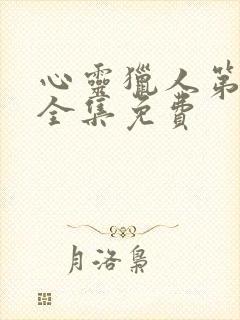 心靈獵人第
全集免費
月洛梟